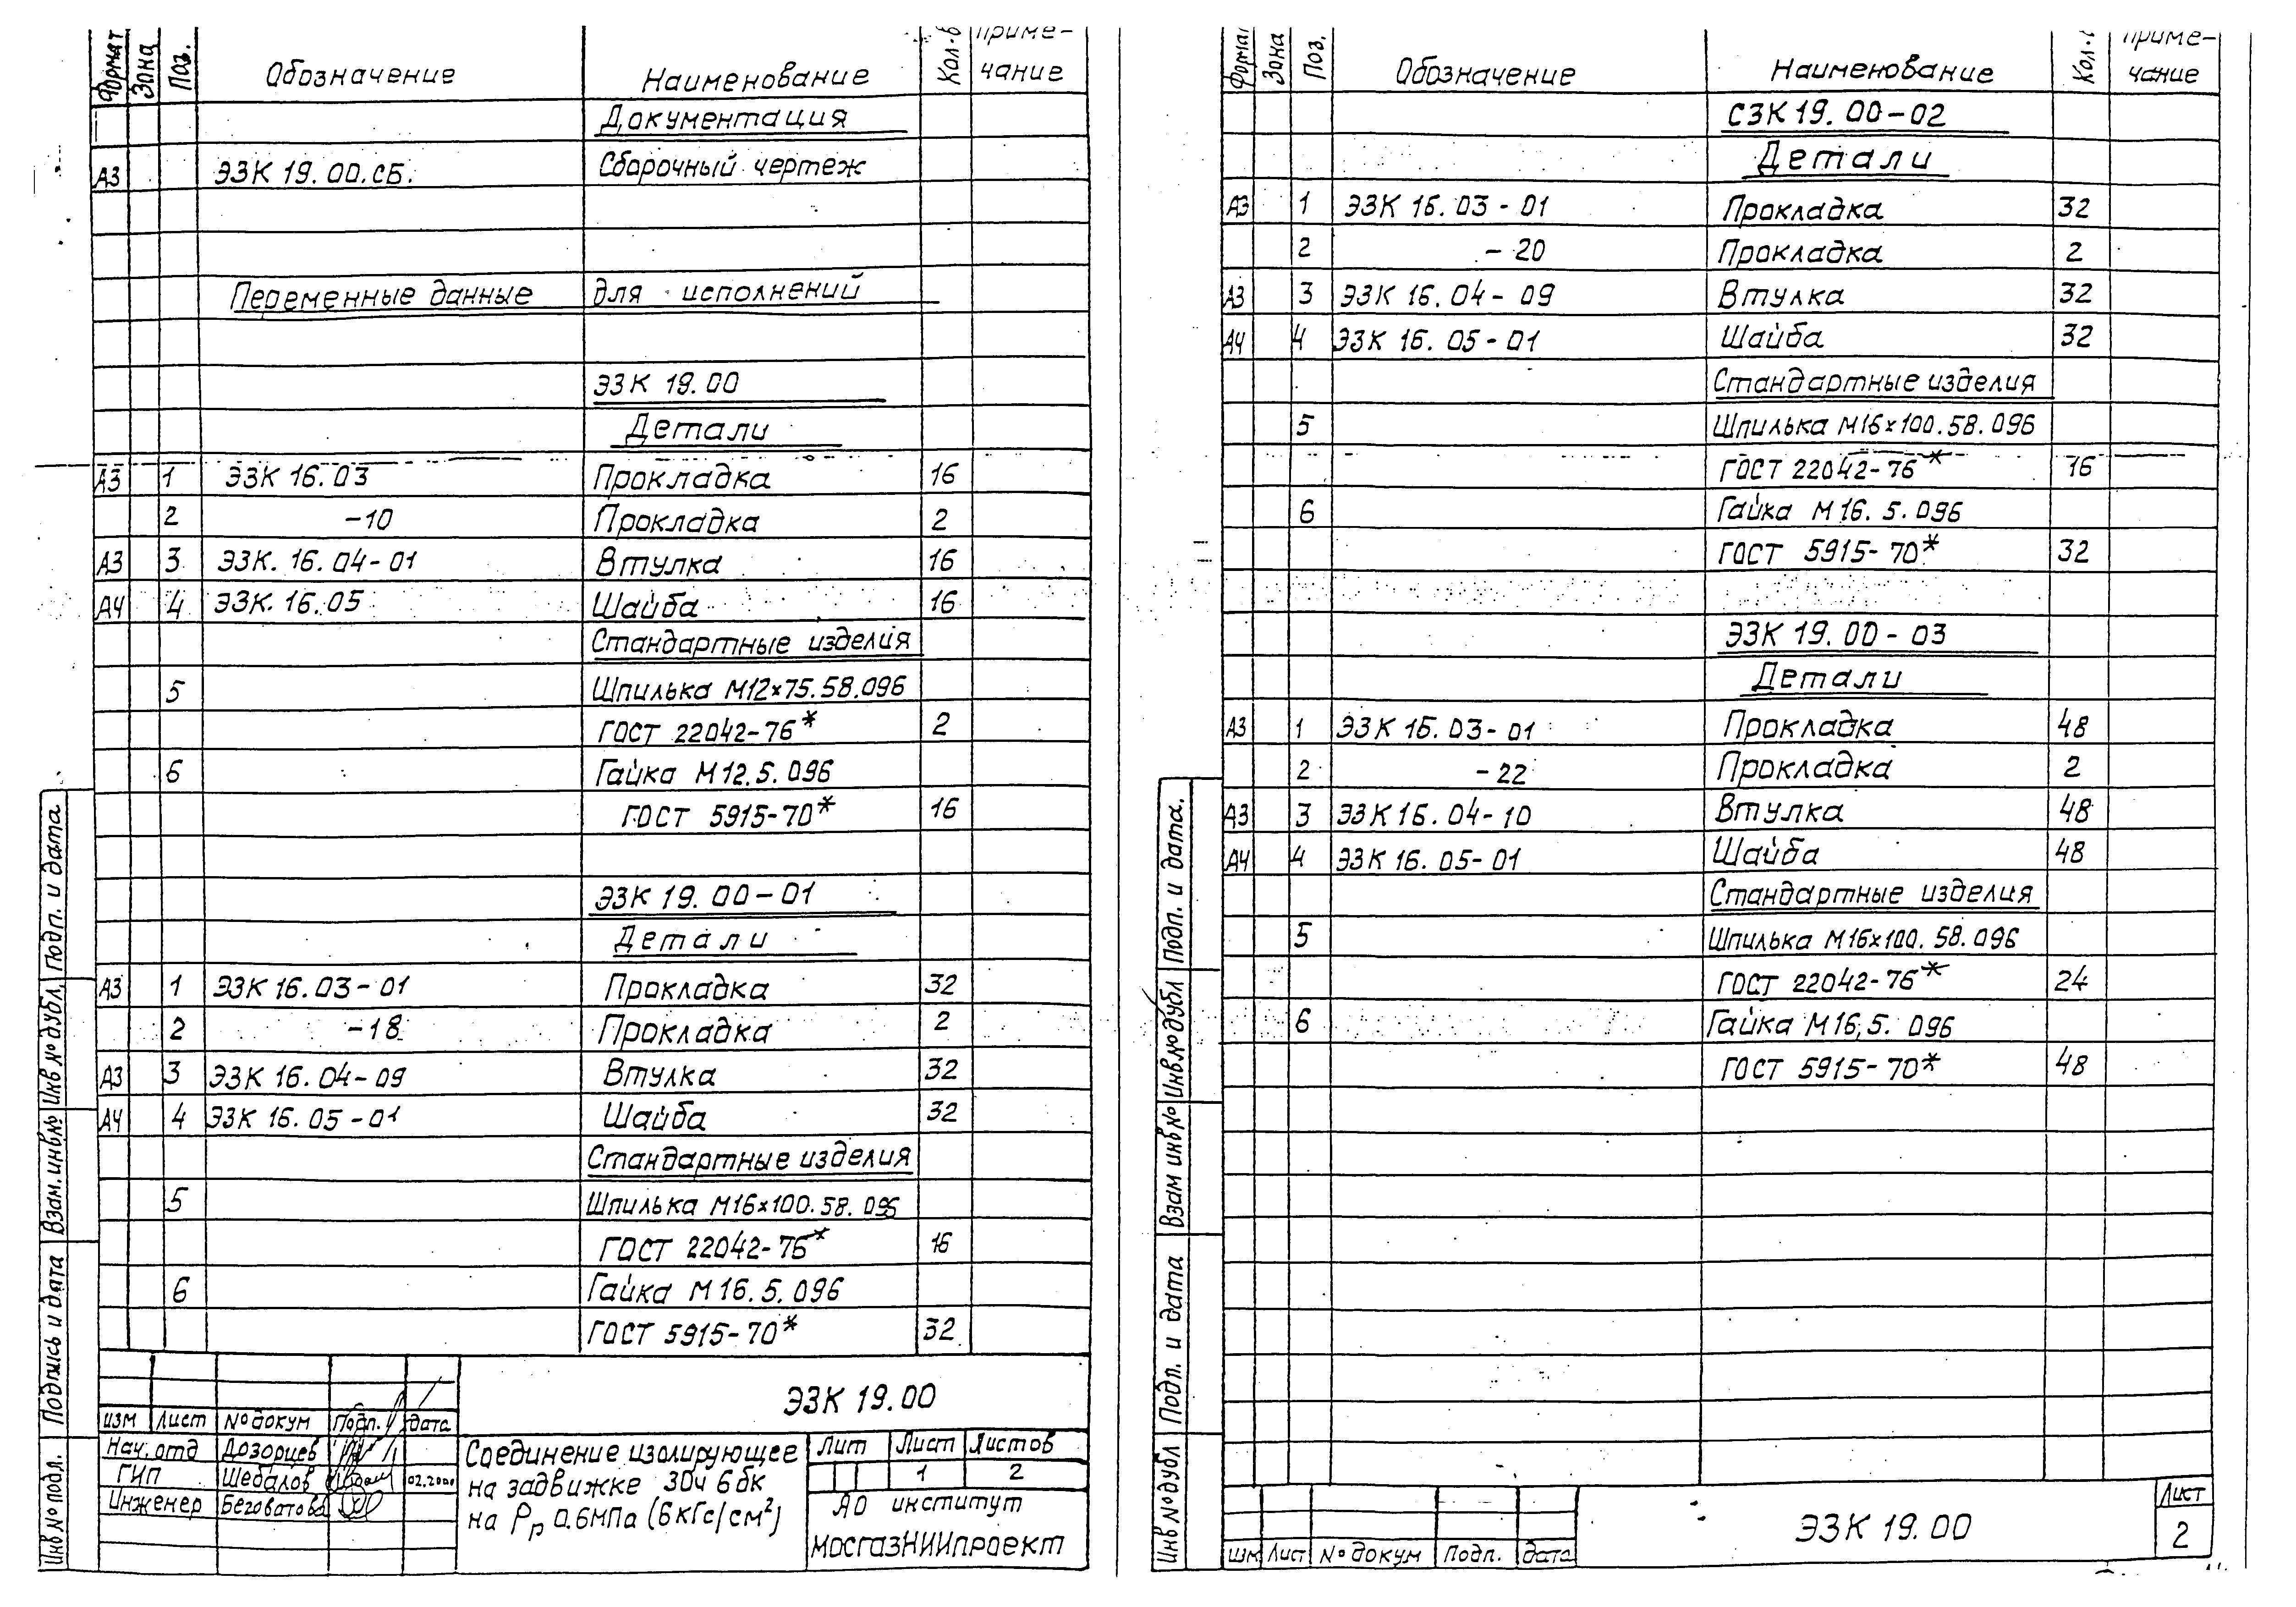 Формат Зона Поз. Обозначение Наименование Кол-в приме-
чание
Документация
А3 ЭЗК 19.00.СБ. Сборочный чертеж
Переменные данные для исполнений
ЭЗК 19.00
Детали
А3 1 ЭЗК 16.03 Прокладка 16
2 -10 Прокладка 2
А3 3 ЭЗК. 16.04-01 Втулка 16
А4 4 ЭЗК. 16.05 Шайба 16
Стандартные изделия
5 Шпилька М12×75.58.096
ГОСТ 22042-76* 2
6 Гайка М12.5.096
ГОСТ 5915-70* 16
ЭЗК 19.00-01
Детали
А3 1 ЭЗК 16.03-01 Прокладка 32
2 -18 Прокладка 2
А3 3 ЭЗК 16.04-09 Втулка 32
А4 4 ЭЗК 16.05-01 Шайба 32
Стандартные изделия
5 Шпилька М16×100.58.096
ГОСТ 22042-76* 16
6 Гайка М16.5.096
ГОСТ 5915-70* 32
ЭЗК 19.00
изм Лист № докум Подп. дата
Нач. отд Дозорцев
ГИП Шебалов 02.2000
Инженер Беговатова
Соединение изолирующее
на задвижке 30ч 6бк
на Рр 0.6МПа (6кГс/см²)
Лит Лист Листов
1 2
АО институт
МосгазНИИпроект
Подп. и дата
Инв № дубл.
Взам. инв.№
Подпись и дата
Инв № подл.
Формат Зона Поз. Обозначение Наименование Кол. приме-
чание
СЗК 19.00-02
Детали
А3 1 ЭЗК 16.03-01 Прокладка 32
2 -20 Прокладка 2
А3 3 ЭЗК 16.04-09 Втулка 32
А4 4 ЭЗК 16.05-01 Шайба 32
Стандартные изделия
5 Шпилька М16×100.58.096
ГОСТ 22042-76* 16
6 Гайка М16.5.096
ГОСТ 5915-70* 32
ЭЗК 19.00-03
Детали
А3 1 ЭЗК 16.03-01 Прокладка 48
2 -22 Прокладка 2
А3 3 ЭЗК 16.04-10 Втулка 48
А4 4 ЭЗК 16.05-01 Шайба 48
Стандартные изделия
5 Шпилька М16×100.58.096
ГОСТ 22042-76* 24
6 Гайка М16,5.096
ГОСТ 5915-70* 48
изм Лист № докум Подп. дата
ЭЗК 19.00
Лист
2
Подп. и дата.
Инв.№ дубл
Взам инв №
Подп. и дата
Инв № дубл